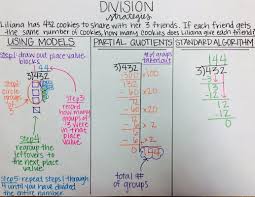 DIVISION
strategies
Liliana has 432 cookies to share with her 3 friends. If each friend gets
the same number of cookies, how many cookies does Liliana give each friend?
USING MODELS
PARTIAL QUOTIENTS
STANDARD ALGORITHM
Step 1: draw out place value
blocks
144
3)432
Step 2:
circle
groups
of 3
Step 3:
record
how many
groups of
3 were in
that place
value
Step 4:
regroup the
leftovers to
the next place
value.
Step 5: repeat steps 1 through
4 until you have divided
the entire number.
3)432
300 x100
132
x20
12
144
total # of
groups
144
3)432
3
13
12
12
12
0